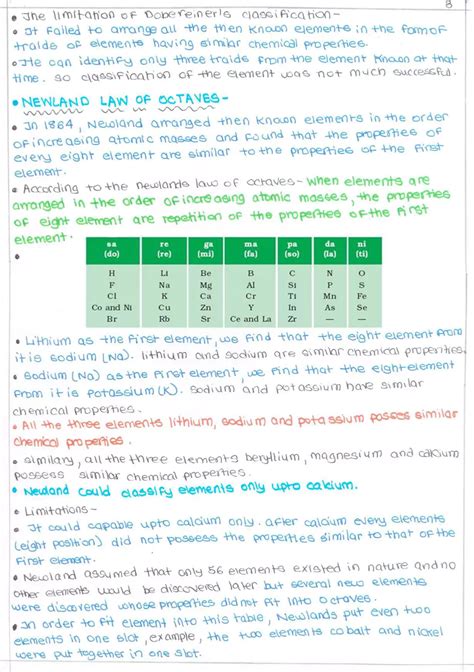 8
• The limitation of Dobereiner's classification-
• It failed to arrange all the then known elements in the form of
traids of elements having similar chemical properties.
• He can identify only three traids from the element known at that
time. so classification of the element was not much successful.
• NEWLAND LAW OF OCTAVES-
• In 1864, Newland arranged then known elements in the order
of increasing atomic masses and found that the properties of
every eight element are similar to the properties of the first
element.
• According to the newlands law of octaves- when elements are
arranged in the order of increasing atomic masses, the properties
of eight element are repetition of the properties of the first
element.
sa re ga ma pa da ni
(do) (re) (mi) (fa) (so) (la) (ti)
H Li Be B C N O
F Na Mg Al Si P S
Cl K Ca Cr Ti Mn Fe
Co and Ni Cu Zn Y In As Se
Br Rb Sr Ce and La Zr — —
• Lithium as the first element, we find that the eight element from
it is sodium (Na). lithium and sodium are similar chemical properties.
• sodium (Na) as the first element, we find that the eight element
from it is potassium (K). sodium and potassium have similar
chemical properties.
• All the three elements lithium, sodium and potassium posses similar
chemical properties.
• similary, all the three elements beryllium, magnesium and calcium
possess similar chemical properties.
• Newland could classify elements only upto calcium.
• Limitations-
• It could capable upto calcium only. after calcium every elements
(eight position) did not possess the properties similar to that of the
first element.
• Newland assumed that only 56 elements existed in nature and no
other elements would be discovered later but several new elements
were discovered whose properties did not fit into octaves.
• In order to fit element into this table, Newlands put even two
elements in one slot, example, the two elements cobalt and nickel
were put together in one slot.